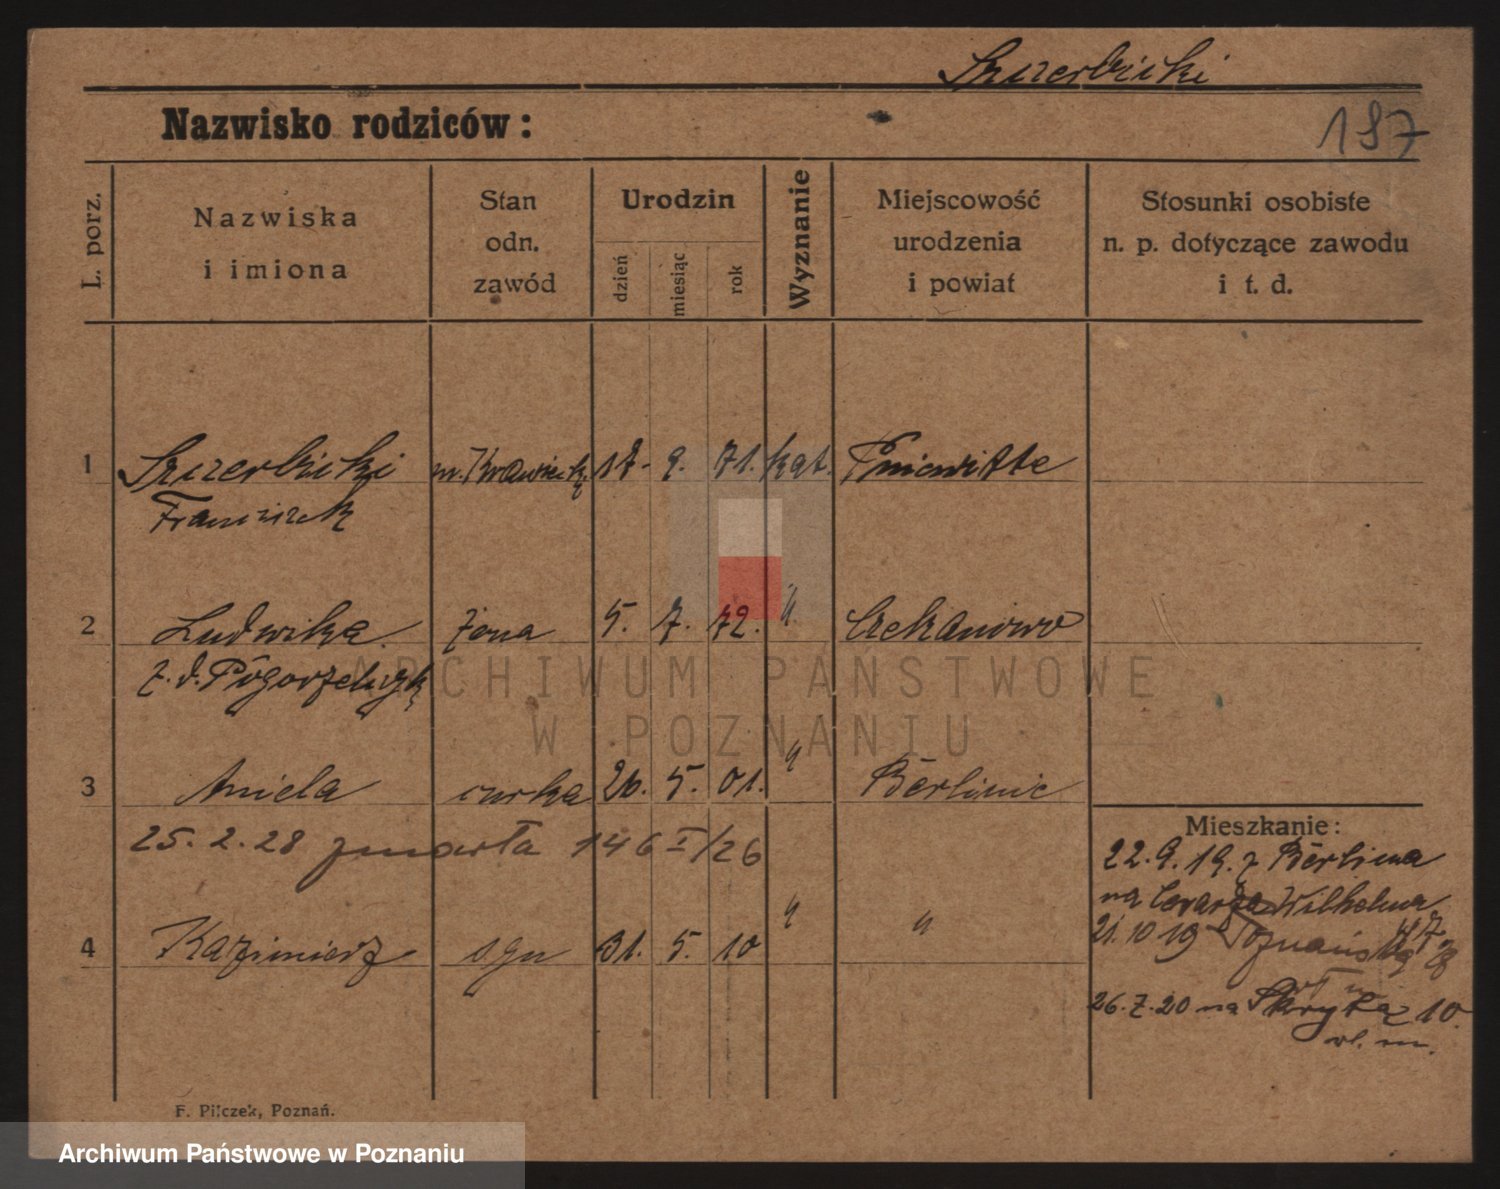 Szczerbicki
Nazwisko rodziców:
187
L. porz.
Nazwiska
i imiona
Stan
odn.
zawód
Urodzin
dzień
miesiąc
rok
Wyznanie
Miejscowość
urodzenia
i powiat
Stosunki osobiste
n. p. dotyczące zawodu
i t. d.
1 Szczerbicki m. Krawiecki 17. 9. 71. kat. Pniewitte
Franciszek
2 Ludwika żona 5. 7. 72. " Czekanowo
z. d.
3 Aniela curka 26. 5. 01. " Berlinie
25. 2. 28 zmarła 146 I/26
4 Kazimierz syn 31. 5. 10 " "
Mieszkanie:
22. 9. 19. z Berlina
na Wilhelma
21. 10 19 Poznańska
26. 7. 20 na Skrytą 10.
wł. m.
F. Pilczek, Poznań.
ARCHIWUM PAŃSTWOWE
W POZNANIU
Archiwum Państwowe w Poznaniu